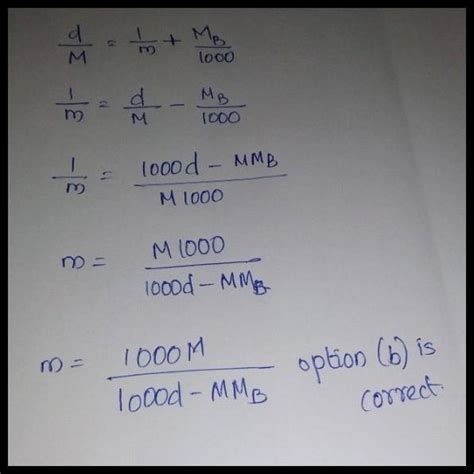 d/M = 1/m + M_B/1000
1/m = d/M - M_B/1000
1/m = 1000d - MM_B / M1000
m = M1000 / 1000d - MM_B
m = 1000M / 1000d - MM_B option (b) is correct.